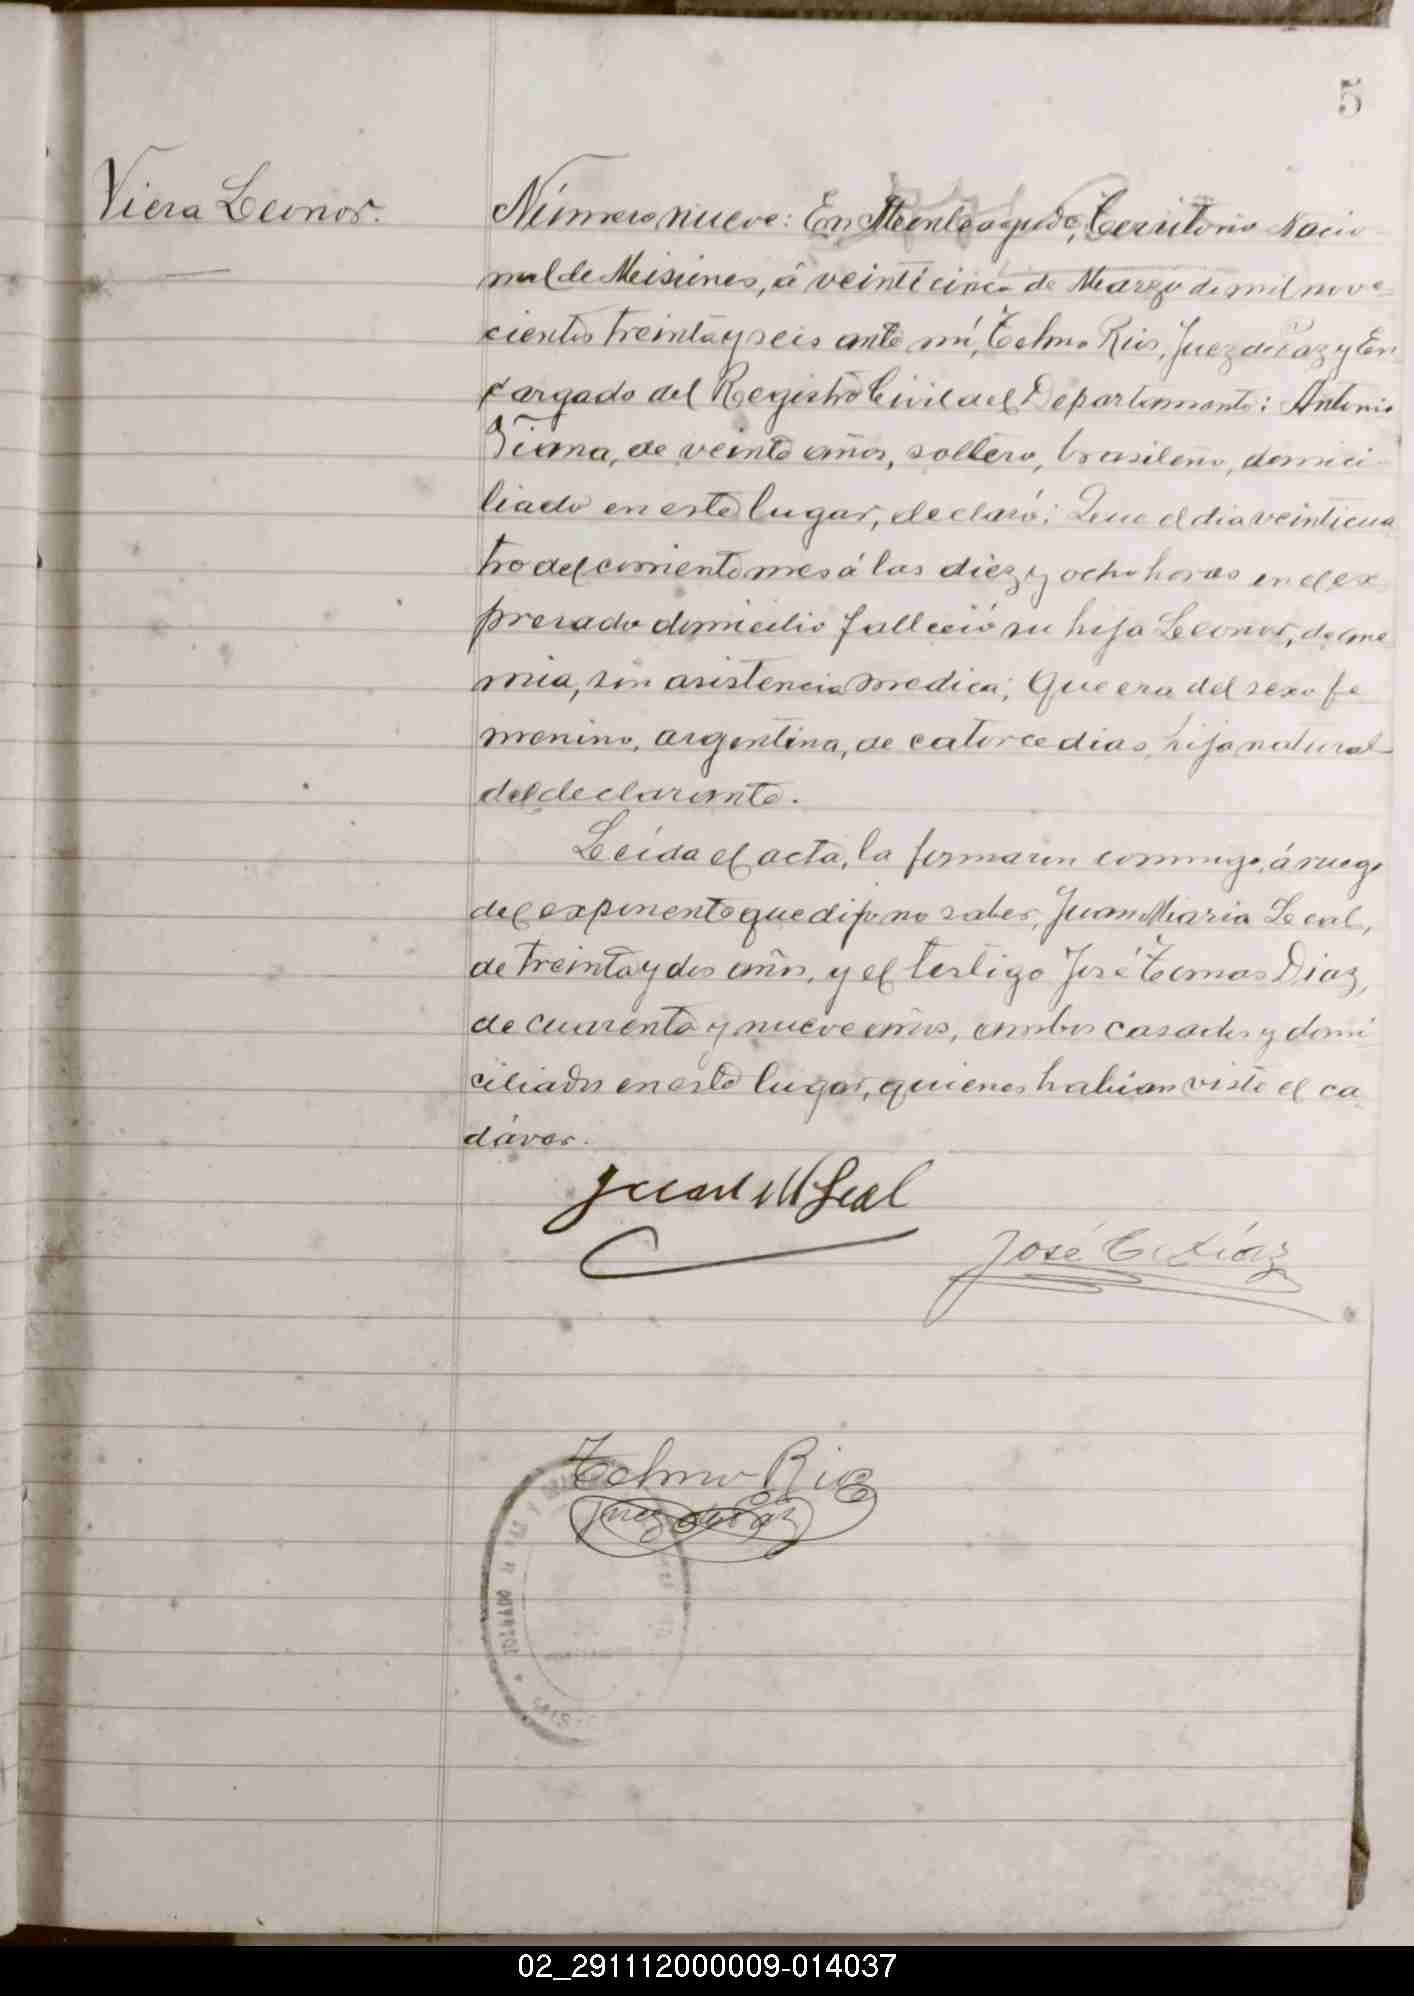 5
Viera Leonor.
Número nueve: En Monteagudo, Territorio Nacio-
nal de Misiones, á veinticinco de Marzo de mil nove-
cientos treinta y seis ante mí, Telmo Rios, Juez de Paz y En
cargado del Registro Civil del Departamento: Antonio
de veinte años, soltero, brasileño, domici-
liado en este lugar, declaró: Que el dia veinticua
tro del corriente mes á las diez y ocho horas en el ex
presado domicilio falleció su hija Leonor, de ane
mia, sin asistencia medica; Que era del sexo fe
menino, argentina, de catorce dias, hija natural
del declarante.
Leída el acta, la firmaron conmigo, á ruego
del exponente que dijo no saber, Juan Maria Leal,
de treinta y dos años, y el testigo José Tomas Diaz,
de cuarenta y nueve años, ambos casados y domi
ciliados en este lugar, quienes habian visto el ca
dáver.
Juan M Leal
José T. Díaz
Telmo Rios
Juez de Paz
JUZGADO DE PAZ Y
02_291112000009-014037